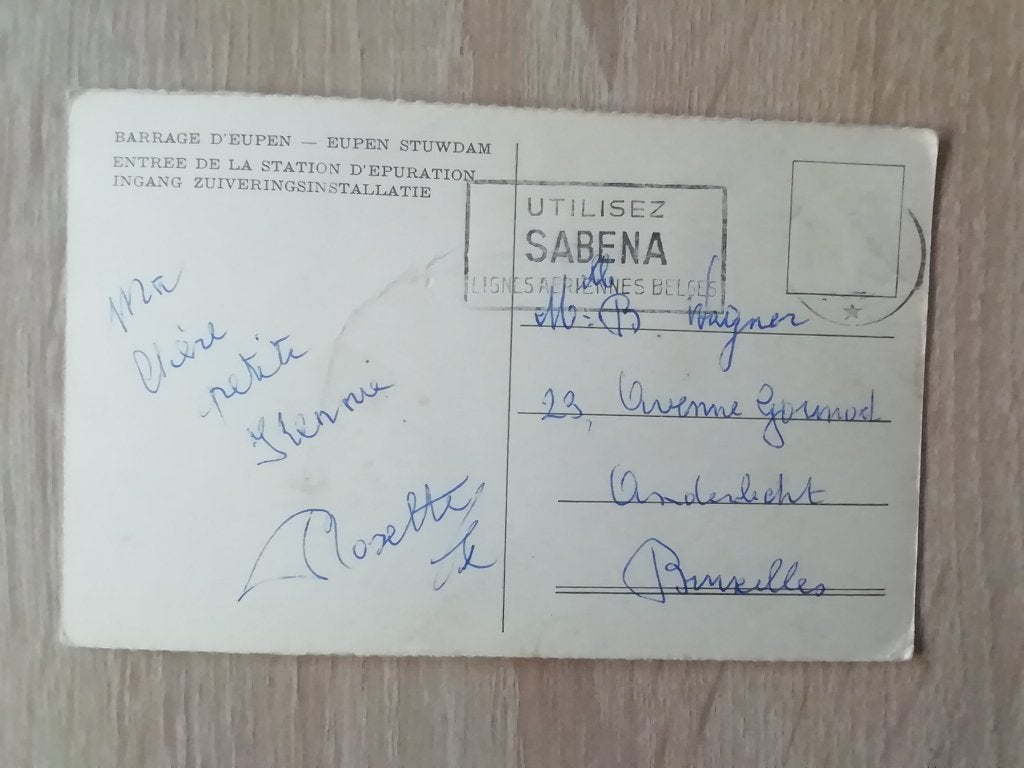 BARRAGE D'EUPEN — EUPEN STUWDAM
ENTREE DE LA STATION D'EPURATION
INGANG ZUIVERINGSINSTALLATIE
UTILISEZ
SABENA
LIGNES AERIENNES BELGES
Ma
Chère
petite
Josette
M: B. Wagner
23, Avenue Gounod
Anderlecht
Bruxelles